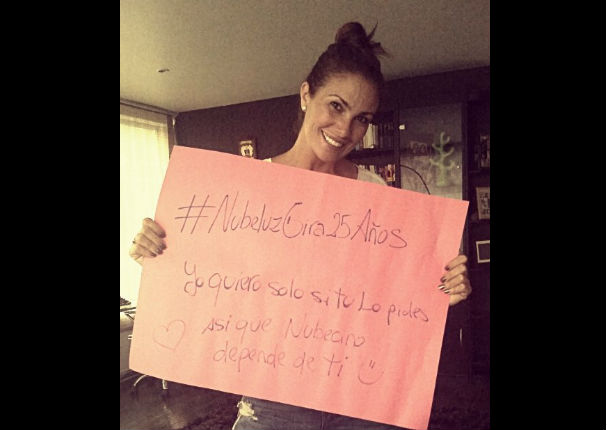 #NubeluzGira25Años
Yo quiero solo si tu Lo pides
Asi que Nubecino
depende de ti